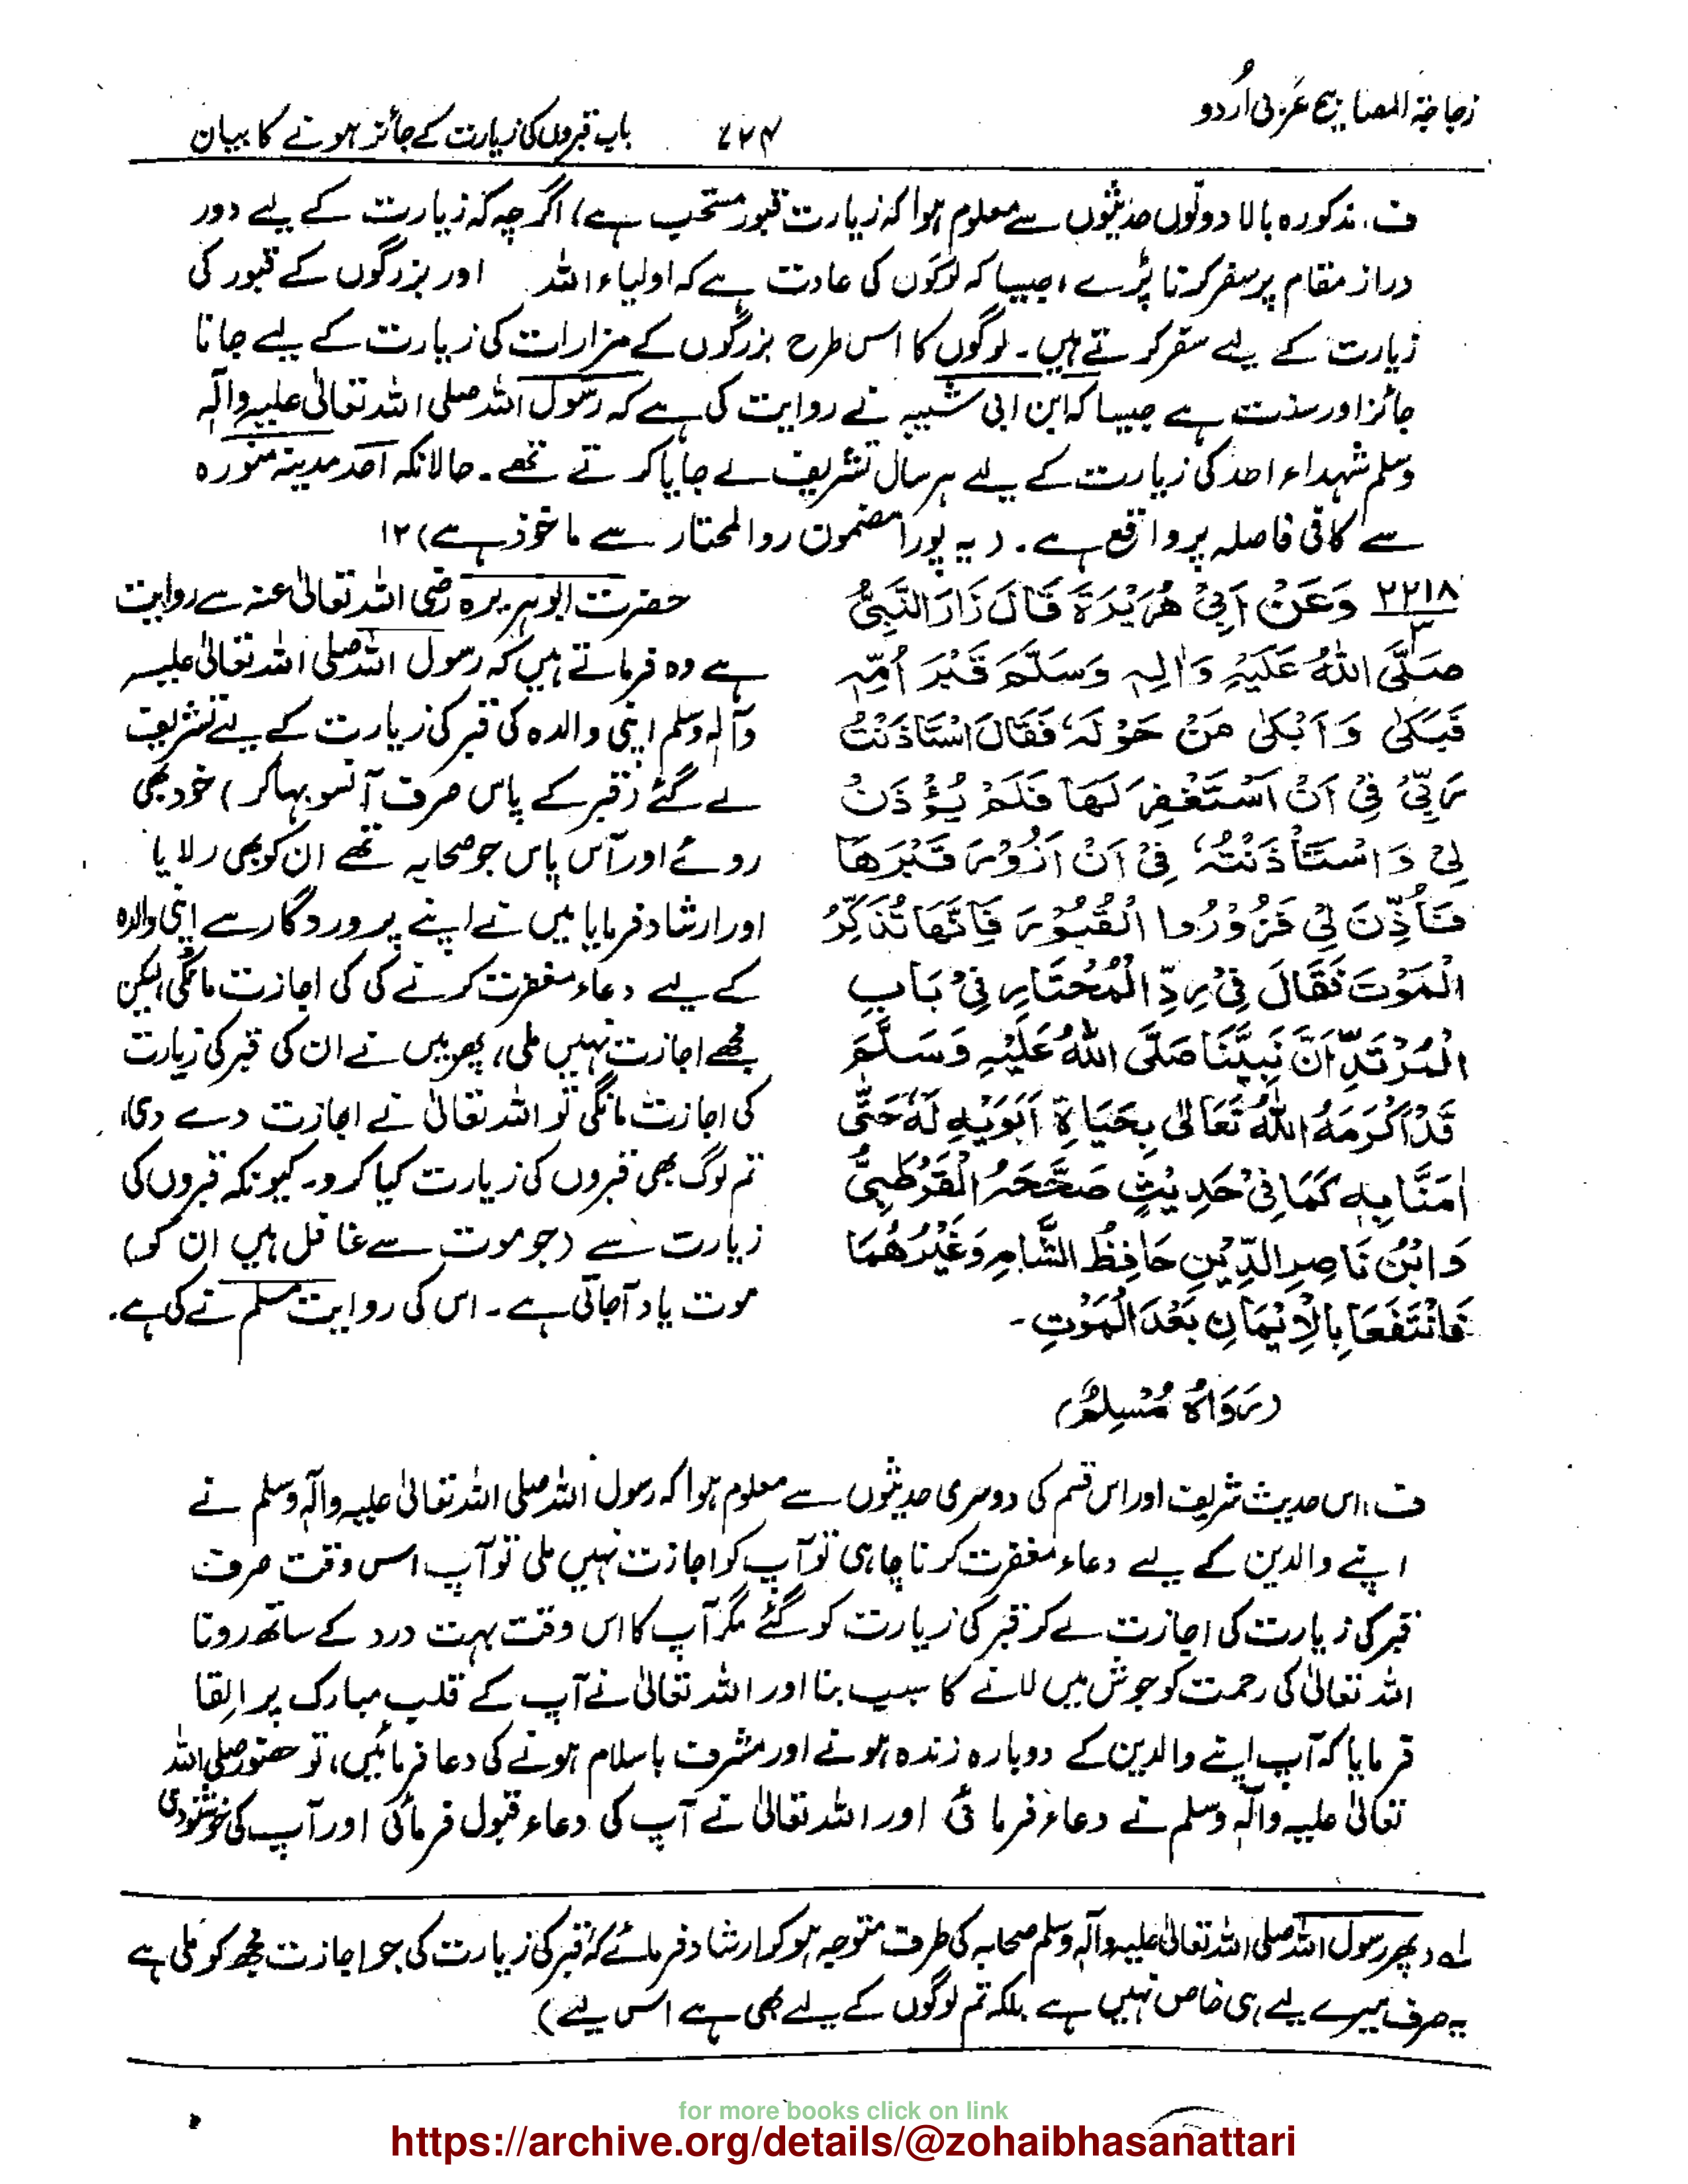 زجاجۃ المصابیح عَربی اُردو
۷۲۴
باب قبروں کی زیارت کے جائز ہونے کا بیان
ف. مذکورہ بالا دونوں حدیثوں سے معلوم ہوا کہ زیارت قبور مستحب ہے) اگرچہ کہ زیارت کے لیے دور
دراز مقام پر سفر کرنا پڑے، جیسا کہ لوگوں کی عادت ہے کہ اولیاء اللہ اور بزرگوں کے قبور کی
زیارت کے لیے سفر کرتے ہیں۔ لوگوں کا اس طرح بزرگوں کے مزارات کی زیارت کے لیے جانا
جائز اور سنت ہے جیسا کہ ابن ابی شیبہ نے روایت کی ہے کہ رسول اللہ صلی اللہ تعالیٰ علیہ وآلہ
وسلم شہداء احد کی زیارت کے لیے ہر سال تشریف لے جایا کرتے تھے۔ حالانکہ احد مدینہ منورہ
سے کافی فاصلہ پر واقع ہے۔ (یہ پورا مضمون ردالمحتار سے ماخوذ ہے) ۱۲
۲۲۱۸/۳ وَعَنْ اَبِیْ ھُرَیْرَۃَ قَالَ زَارَ النَّبِیُّ
صَلَّی اللہُ عَلَیْہِ وَاٰلِہٖ وَسَلَّمَ قَبْرَ اُمِّہٖ
فَبَکٰی وَاَبْکٰی مَنْ حَوْلَہٗ فَقَالَ اسْتَاْذَنْتُ
رَبِّیْ فِیْ اَنْ اَسْتَغْفِرَ لَھَا فَلَمْ یُؤْذَنْ
لِیْ وَاسْتَأْذَنْتُہٗ فِیْ اَنْ اَزُوْرَ قَبْرَھَا
فَأُذِّنَ لِیْ فَزُوْرُوا الْقُبُوْرَ فَاِنَّھَا تُذَکِّرُ
الْمَوْتَ فَقَالَ فِیْ رَدِّ الْمُحْتَارِ فِیْ بَابِ
الْمُرْتَدِّ اَنَّ نَبِیَّنَا صَلَّی اللہُ عَلَیْہِ وَسَلَّمَ
قَدْ اَکْرَمَہُ اللہُ تَعَالٰی بِحَیَاۃِ اَبَوَیْہِ لَہٗ حَتّٰی
اٰمَنَّا بِہٖ کَمَا فِیْ حَدِیْثٍ صَحَّحَہُ الْقُرْطُبِیُّ
وَابْنُ نَاصِرِ الدِّیْنِ حَافِظُ الشَّامِ وَغَیْرُھُمَا
فَانْتَفَعَا بِالْاِیْمَانِ بَعْدَ الْمَوْتِ۔
(رَوَاہُ مُسْلِمٌ)
حضرت ابوہریرہ رضی اللہ تعالیٰ عنہ سے روایت
ہے وہ فرماتے ہیں کہ رسول اللہ صلی اللہ تعالیٰ علیہ
وآلہ وسلم اپنی والدہ کی قبر کی زیارت کے لیے تشریف
لے گئے (قبر کے پاس صرف آنسو بہا کر) خود بھی
روئے اور آس پاس جو صحابہ تھے ان کو بھی رلایا
اور ارشاد فرمایا میں نے اپنے پروردگار سے اپنی والدہ
کے لیے دعاء مغفرت کرنے کی کی اجازت مانگی، لیکن
مجھے اجازت نہیں ملی، پھر میں نے ان کی قبر کی زیارت
کی اجازت مانگی تو اللہ تعالیٰ نے اجازت دے دی،
تم لوگ بھی قبروں کی زیارت کیا کرو۔ کیونکہ قبروں کی
زیارت سے (جو موت سے غافل ہیں ان کو)
موت یاد آجاتی ہے۔ اس کی روایت مسلم نے کی ہے۔
ف: اس حدیث شریف اور اس قسم کی دوسری حدیثوں سے معلوم ہوا کہ رسول اللہ صلی اللہ تعالیٰ علیہ وآلہ وسلم نے
اپنے والدین کے لیے دعاء مغفرت کرنا چاہی تو آپ کو اجازت نہیں ملی تو آپ اس وقت صرف
قبر کی زیارت کی اجازت لے کر قبر کی زیارت کو گئے مگر آپ کا اس وقت بہت درد کے ساتھ رونا
اللہ تعالیٰ کی رحمت کو جوش میں لانے کا سبب بنا اور اللہ تعالیٰ نے آپ کے قلب مبارک پر اِلقا
فرمایا کہ آپ اپنے والدین کے دوبارہ زندہ ہونے اور مشرف باسلام ہونے کی دعا فرمائیں، تو حضور صلی اللہ
تعالیٰ علیہ وآلہ وسلم نے دعاء فرمائی اور اللہ تعالیٰ نے آپ کی دعاء قبول فرمائی اور آپ کی خوشنودی
لے (پھر رسول اللہ صلی اللہ تعالیٰ علیہ وآلہ وسلم صحابہ کی طرف متوجہ ہو کر ارشاد فرمائے کہ قبر کی زیارت کی جو اجازت مجھ کو ملی ہے
یہ صرف میرے لیے ہی خاص نہیں ہے بلکہ تم لوگوں کے لیے بھی ہے اس لیے)
for more books click on link
https://archive.org/details/@zohaibhasanattari